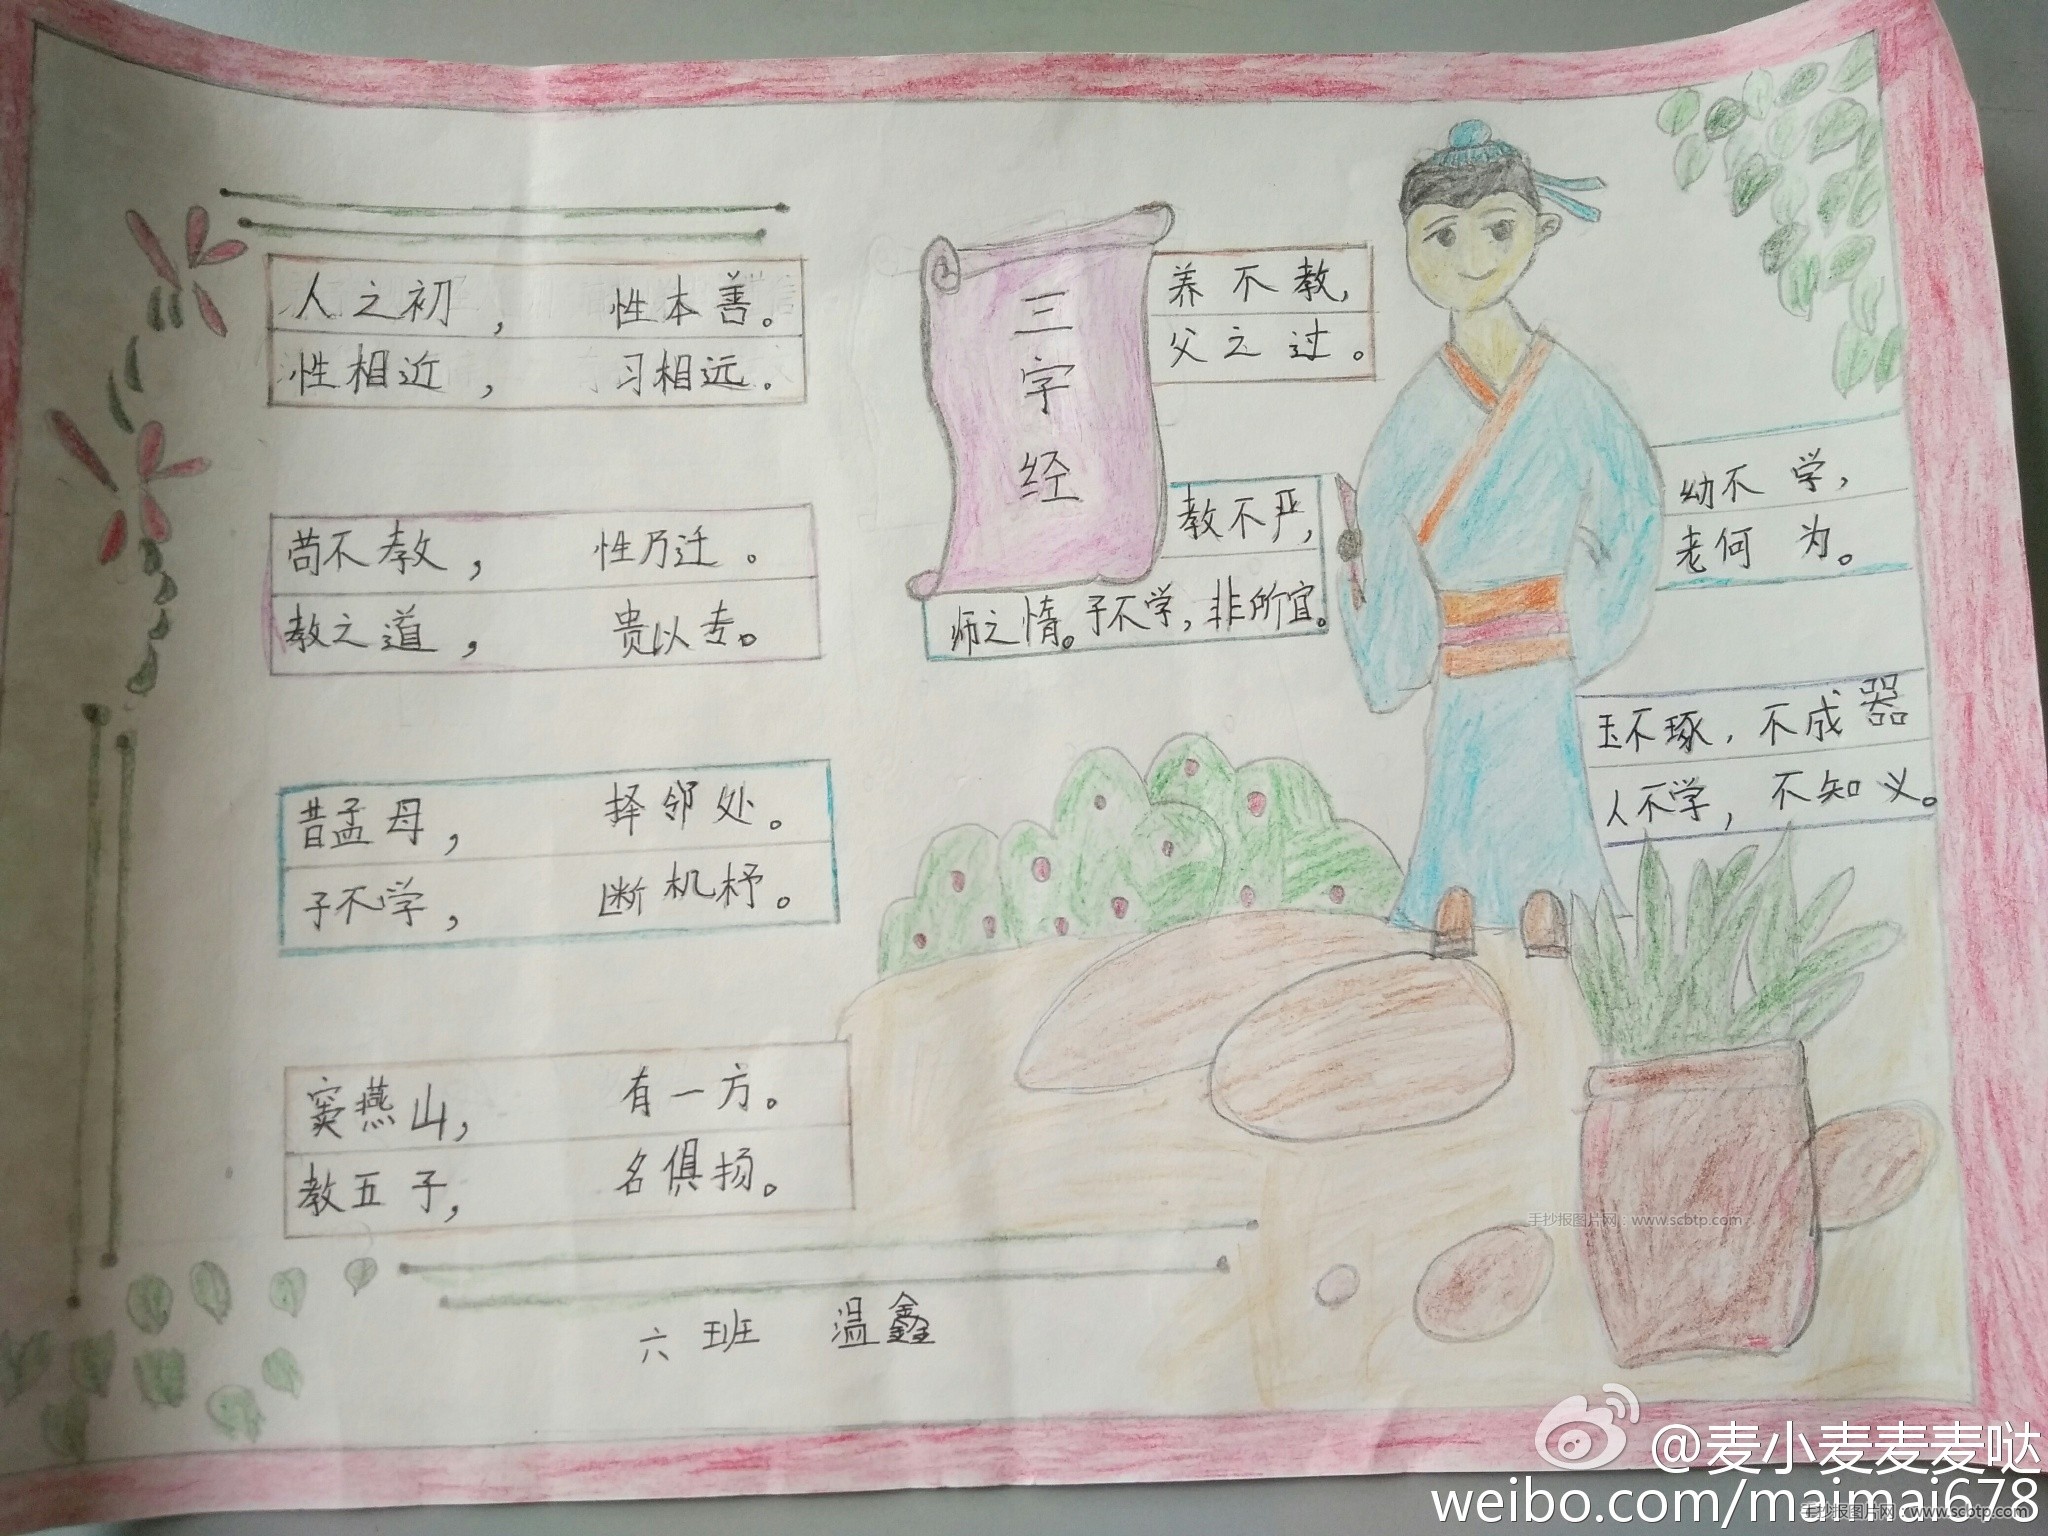 人之初，性本善。
性相近，习相远。
苟不教，性乃迁。
教之道，贵以专。
昔孟母，择邻处。
子不学，断机杼。
窦燕山，有一方。
教五子，名俱扬。
六班 温鑫
三字经
养不教，
父之过。
教不严，
师之惰。子不学，非所宜。
幼不学，
老何为。
玉不琢，不成器
人不学，不知义。
手抄报图片网：www.scbtp.com
@麦小麦麦麦哒
weibo.com/maimai678
手抄报图片网：www.scbtp.com